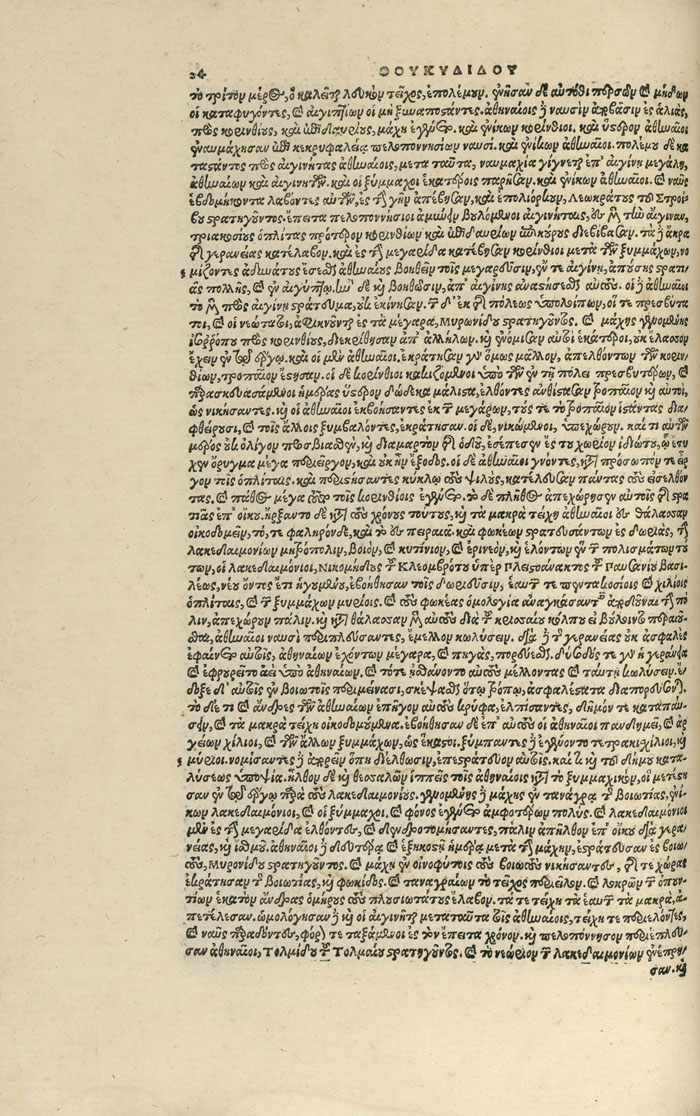 24 ΘΟΥΚΥΔΙΔΟΥ
το τρίτον μέρος, ὃ καλεῖται λευκὸν τεῖχος, ἐπολέμουν. ἐνῆσαν δὲ αὐτόθι περσῶν καὶ μήδων
οἱ καταφυγόντες, καὶ αἰγυπτίων οἱ μὴ ξυναποστάντες. ἀθηναίοις δὲ ναυσὶν ἀποβᾶσιν ἐς ἁλιὰς,
πρὸς κορινθίους, καὶ ἐπιδαυρίους, μάχη ἐγένετο. καὶ ἐνίκων κορίνθιοι. καὶ ὕστερον ἀθηναῖοι
ἐναυμάχησαν ἐπὶ κεκρυφαλείᾳ πελοποννησίων ναυσί. καὶ ἐνίκων ἀθηναῖοι. πολέμου δὲ κα
ταστάντος πρὸς αἰγινήτας ἀθηναίοις, μετὰ ταῦτα, ναυμαχία γίγνεται ἐπ' αἰγίνῃ μεγάλη,
ἀθηναίων καὶ αἰγινητῶν. καὶ οἱ ξύμμαχοι ἑκατέροις παρῆσαν. καὶ ἐνίκων ἀθηναῖοι. καὶ ναῦς
ἑβδομήκοντα λαβόντες αὐτῶν, ἐς τὴν γῆν ἀπέβησαν, καὶ ἐπολιόρκουν, λεωκράτους τοῦ Στροί-
βου στρατηγοῦντος. ἔπειτα πελοποννήσιοι ἀμύνειν βουλόμενοι αἰγινήταις, ἐς μὲν τὴν αἴγιναν,
τριακοσίους ὁπλίτας πρότερον κορινθίων καὶ ἐπιδαυρίων ἐπικούρους διεβίβασαν. τὰ δὲ ἄκρα
τῆς γερανείας κατέλαβον. καὶ ἐς τὴν μεγαρίδα κατέβησαν κορίνθιοι μετὰ τῶν ξυμμάχων, νο
μίζοντες ἀδυνάτους ἔσεσθαι ἀθηναίους βοηθεῖν τοῖς μεγαρεῦσιν, ἔν τε αἰγίνῃ, ἀπούσης στρατι-
ᾶς πολλῆς, καὶ ἐν αἰγύπτῳ. ἢν δὲ καὶ βοηθῶσιν, ἀπ' αἰγίνης ἀναστήσεσθαι αὐτούς. οἱ δὲ ἀθηναῖοι
τὸ μὲν πρὸς αἰγίνῃ στράτευμα, οὐκ ἐκίνησαν. τῶν δ' ἐκ τῆς πόλεως ὑπολοίπων, οἵ τε πρεσβύτα
τοι, καὶ οἱ νεώτατοι, ἀφικνοῦνται ἐς τὰ μέγαρα, Μυρωνίδου στρατηγοῦντος. καὶ μάχης γενομένης
ἰσορρόπου πρὸς κορινθίους, διεκρίθησαν ἀπ' ἀλλήλων. καὶ ἐνόμισαν αὐτοὶ ἑκάτεροι, οὐκ ἔλασσον
ἔχειν ἐν τῷ ἔργῳ. καὶ οἱ μὲν ἀθηναῖοι, ἐκράτησαν γὰρ ὅμως μᾶλλον, ἀπελθόντων τῶν κοριν-
θίων, τροπαῖον ἔστησαν. οἱ δὲ κορίνθιοι κακιζόμενοι ὑπὸ τῶν ἐν τῇ πόλει πρεσβυτέρων, καὶ
παρασκευασάμενοι ἡμέρας ὕστερον δώδεκα μάλιστα, ἐλθόντες ἀνθίστασαν τροπαῖον καὶ αὐτοί,
ὡς νικήσαντες. καὶ οἱ ἀθηναῖοι ἐκβοήσαντες ἐκ τῶν μεγάρων, τούς τε τὸ τροπαῖον ἱστάντας δια-
φθείρουσι, καὶ τοῖς ἄλλοις ξυμβαλόντες, ἐκράτησαν. οἱ δὲ, νικώμενοι, ὑπεχώρουν. καί τι αὐτῶν
μέρος οὐκ ὀλίγον προσβιασθὲν, καὶ διαμαρτὸν τῆς ὁδοῦ, ἐσέπεσεν ἔς του χωρίον ἰδιώτου, ᾧ ἔτυ
χεν ὄρυγμα μέγα περιεῖργον, καὶ οὐκ ἦν ἔξοδος. οἱ δὲ ἀθηναῖοι γνόντες, κατὰ πρόσωπόν τε εἶρ
γον τοῖς ὁπλίταις. καὶ περιστήσαντες κύκλῳ τοὺς ψιλοὺς, κατέλευσαν πάντας τοὺς εἰσελθόν
τας. καὶ πάθος μέγα τοῦτο τοῖς κορινθίοις ἐγένετο. τὸ δὲ πλῆθος ἀπεχώρησεν αὐτοῖς τῆς στρα
τιᾶς ἐπ' οἴκου. ἤρξαντο δὲ κατὰ τοὺς χρόνους τούτους, καὶ τὰ μακρὰ τείχη ἀθηναῖοι ἐς θάλασσαν
οἰκοδομεῖν, τό, τε φαληρόνδε, καὶ τὸ ἐς πειραιᾶ. καὶ φωκέων στρατευσάντων ἐς δωριᾶς, τὴν
λακεδαιμονίων μητρόπολιν, βοιὸν, καὶ κυτίνιον, καὶ ἐρινεὸν, καὶ ἑλόντων ἓν τῶν πολισμάτων τού
των, οἱ λακεδαιμόνιοι, Νικομήδους τοῦ Κλεομβρότου ὑπὲρ Πλειστοάνακτος τοῦ Παυσανίου Βασι-
λέως, νέου ὄντος ἔτι ἡγουμένου, ἐβοήθησαν τοῖς δωριεῦσιν, ἑαυτῶν τε πεντακοσίοις καὶ χιλίοις
ὁπλίταις, καὶ τῶν ξυμμάχων μυρίοις. καὶ τοὺς φωκέας ὁμολογίᾳ ἀναγκάσαντες ἀποδοῦναι τὴν πό
λιν, ἀπεχώρουν πάλιν. καὶ κατὰ θάλασσαν μὲν αὐτοὺς διὰ τοῦ κρισαίου κόλπου εἰ βούλοιντο περαιοῦ-
σθαι, ἀθηναῖοι ναυσὶ περιπλεύσαντες, ἔμελλον κωλύσειν. διὰ δὲ τῆς γερανείας οὐκ ἀσφαλὲς
ἐφαίνετο αὐτοῖς, ἀθηναίων ἐχόντων μέγαρα, καὶ πηγὰς, πορεύεσθαι. δύσοδός τε γὰρ ἡ γεράνεια
καὶ ἐφρουρεῖτο ἀεὶ ὑπὸ ἀθηναίων. καὶ τότε ᾐσθάνοντο αὐτοὺς μέλλοντας καὶ ταύτῃ κωλύσειν. ἔ-
δοξε δ' αὐτοῖς ἐν βοιωτοῖς περιμείνασι, σκέψασθαι ὅτῳ τρόπῳ, ἀσφαλέστατα διαπορεύσονται.
τὸ δέ τι καὶ ἄνδρες τῶν ἀθηναίων ἐπῆγον αὐτοὺς κρύφα, ἐλπίσαντες, δῆμόν τε καταπαύ-
σειν, καὶ τὰ μακρὰ τείχη οἰκοδομούμενα. ἐβοήθησαν δὲ ἐπ' αὐτοὺς οἱ ἀθηναῖοι πανδημεὶ, καὶ ἀρ
γείων χίλιοι, καὶ τῶν ἄλλων ξυμμάχων, ὡς ἕκαστοι. ξύμπαντες δὲ ἐγένοντο τετρακισχίλιοι, καὶ
μύριοι. νομίσαντες δὲ ἀπορεῖν ὅπῃ διέλθωσιν, ἐπεστράτευσαν αὐτοῖς. καί τι καὶ τοῦ δήμου κατα-
λύσεως ὑποψίᾳ. ἦλθον δὲ καὶ θεσσαλῶν ἱππεῖς τοῖς ἀθηναίοις κατὰ τὸ ξυμμαχικὸν, οἳ μετέστη
σαν ἐν τῷ ἔργῳ παρὰ τοὺς λακεδαιμονίους. γενομένης δὲ μάχης ἐν τανάγρᾳ τῆς Βοιωτίας, ἐνί-
κων λακεδαιμόνιοι, καὶ οἱ ξύμμαχοι. καὶ φόνος ἐγένετο ἀμφοτέρων πολύς. καὶ λακεδαιμόνιοι
μὲν ἐς τὴν μεγαρίδα ἐλθόντες, καὶ δενδροτομήσαντες, πάλιν ἀπῆλθον ἐπ' οἴκου διὰ γερα-
νείας, καὶ ἰσθμοῦ. ἀθηναῖοι δὲ δευτέρᾳ καὶ ἑξηκοστῇ ἡμέρᾳ μετὰ τὴν μάχην, ἐστράτευσαν ἐς βοιω
τοὺς, Μυρωνίδου στρατηγοῦντος. καὶ μάχῃ ἐν οἰνοφύτοις τοὺς βοιωτοὺς νικήσαντες, τῆς τε χώρας
ἐκράτησαν τῆς Βοιωτίας, καὶ φωκίδος. καὶ ταναγραίων τὸ τεῖχος περιεῖλον. καὶ λοκρῶν τῶν ὀπουν-
τίων ἑκατὸν ἄνδρας ὁμήρους τοὺς πλουσιωτάτους ἔλαβον. τά τε τείχη τὰ ἑαυτῶν τὰ μακρὰ, ἀ-
πετέλεσαν. ὡμολόγησαν δὲ καὶ οἱ αἰγινῆται μετὰ ταῦτα τοῖς ἀθηναίοις, τείχη τε περιελόντες,
καὶ ναῦς παραδόντες, φόρον τε ταξάμενοι ἐς τὸν ἔπειτα χρόνον. καὶ πελοπόννησον περιέπλευ-
σαν ἀθηναῖοι, Τολμίδου τοῦ Τολμαίου στρατηγοῦντος. καὶ τὸ νεώριον τῶν λακεδαιμονίων ἐνέπρη-
σαν. καὶ